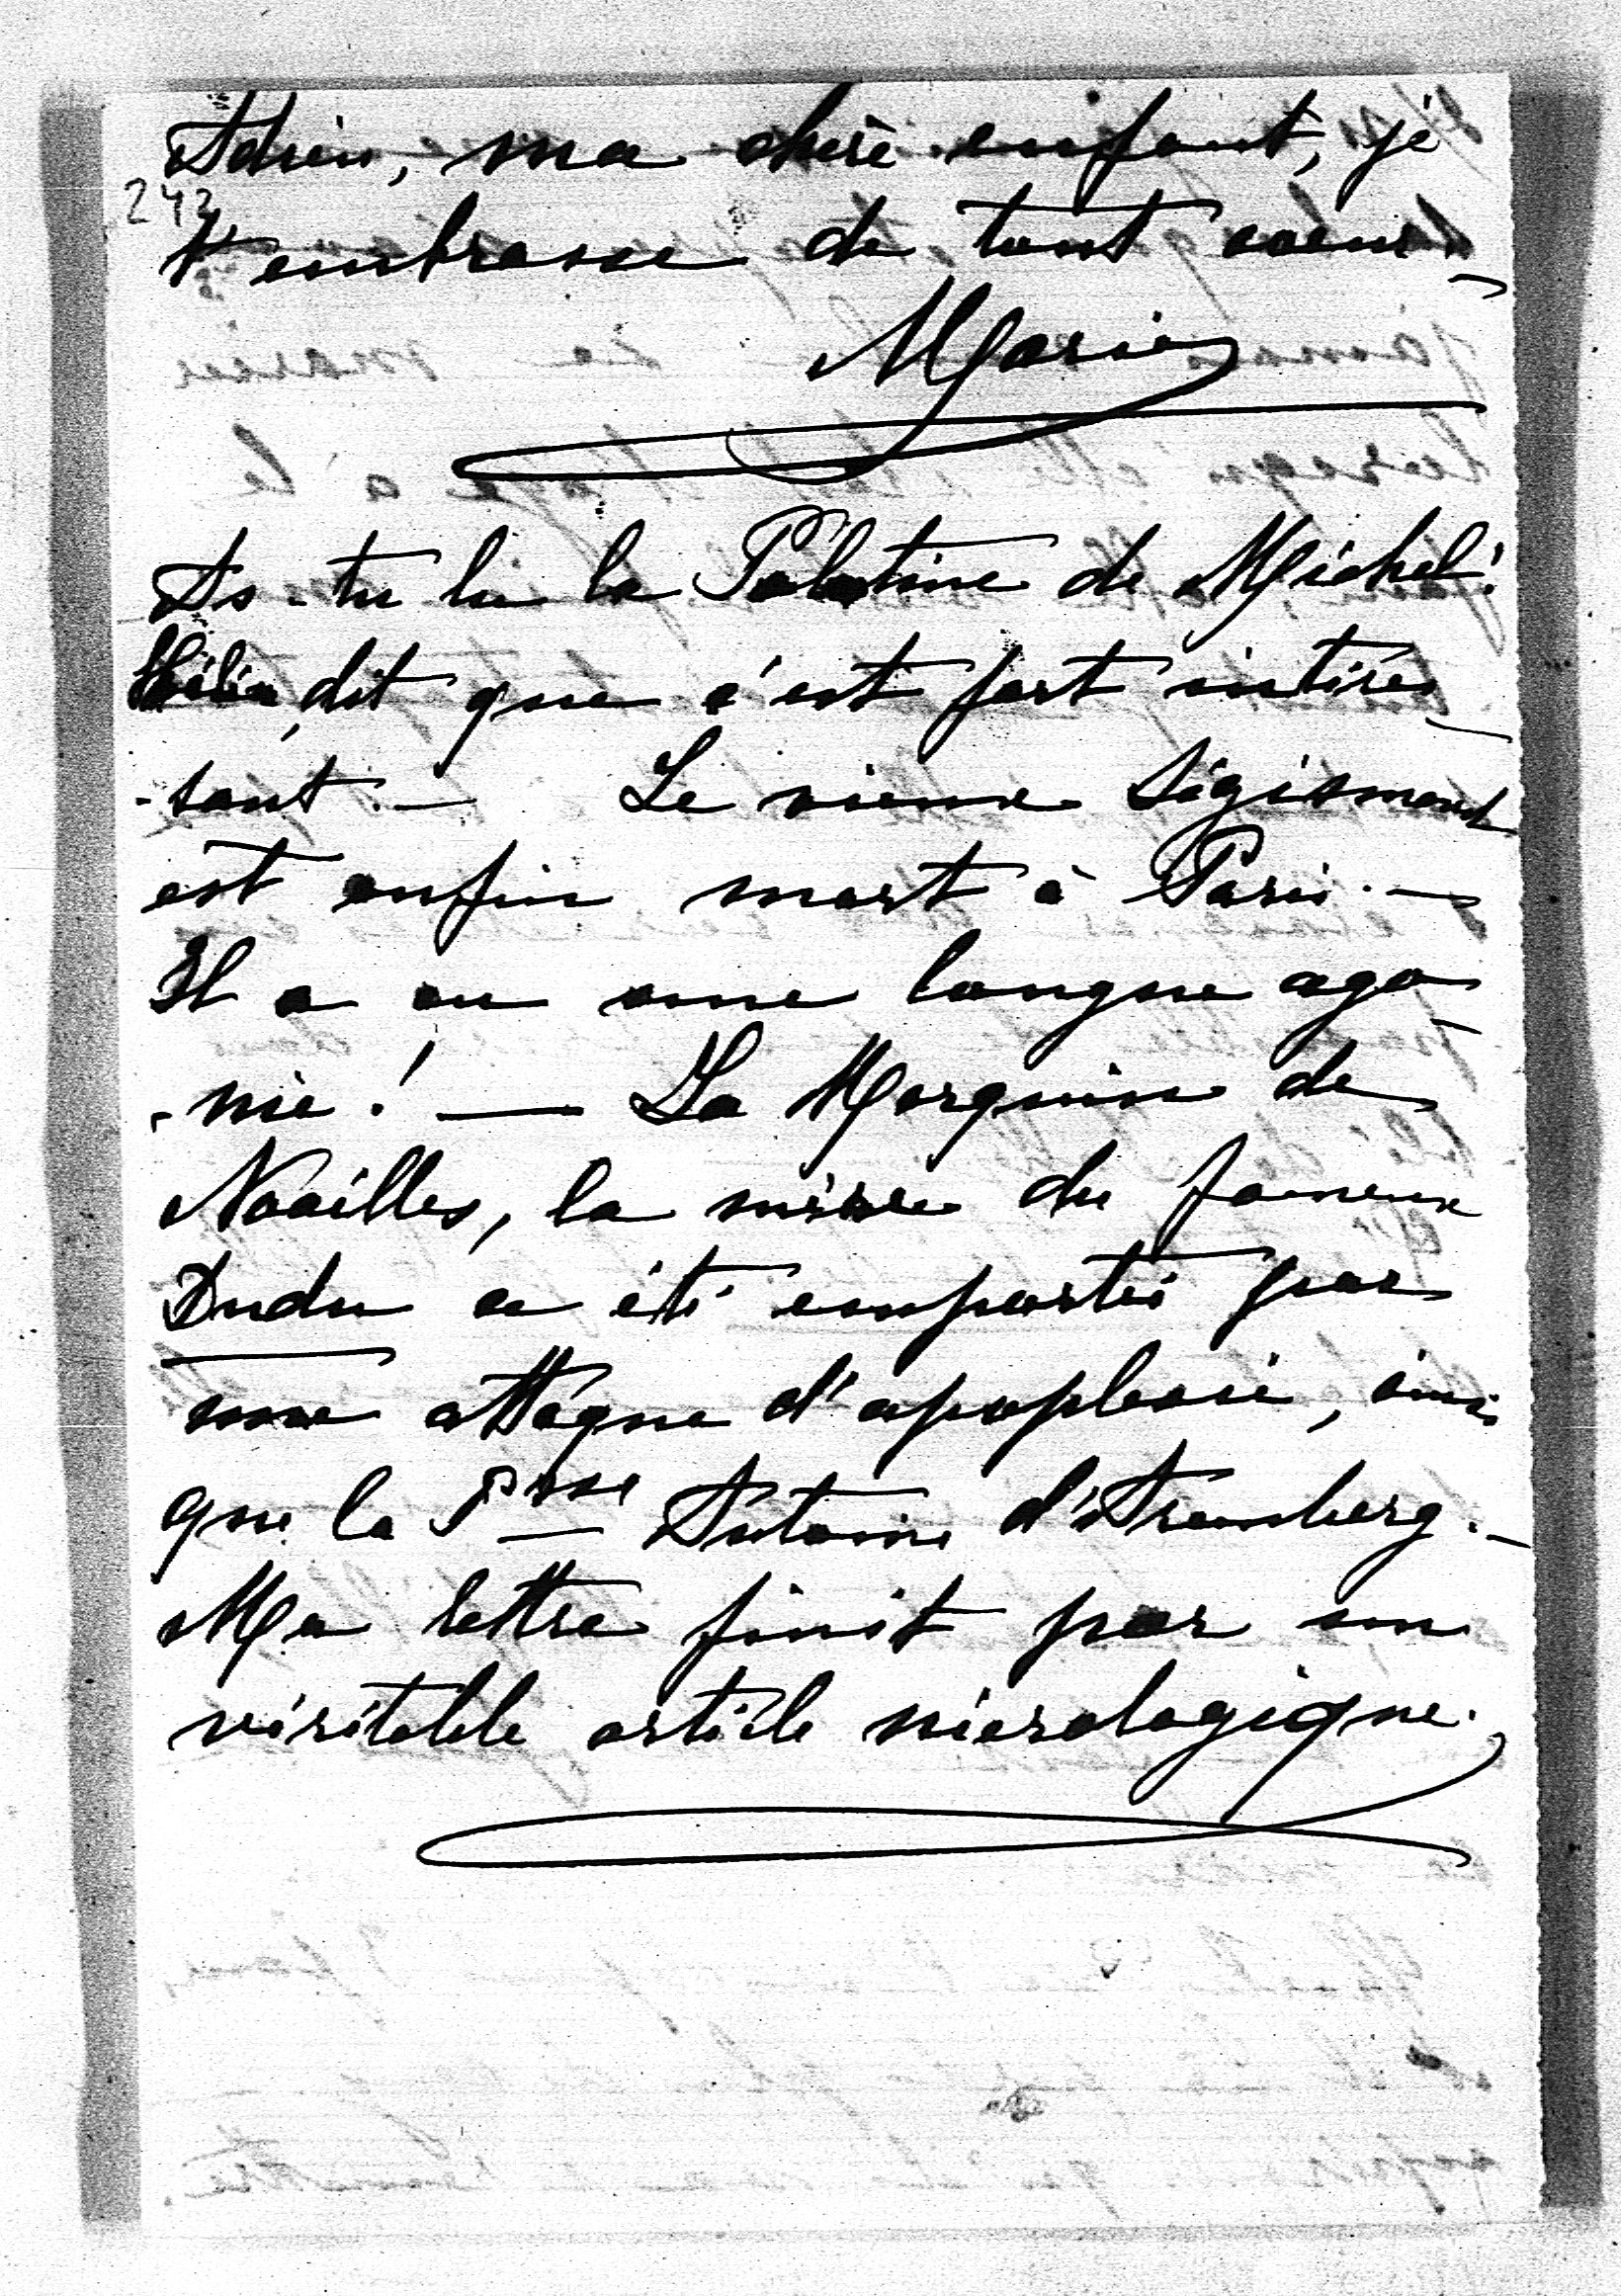 Adieu, ma chère enfant, je
243
t'embrasse de tout coeur.
Marie
As-tu lu la Palatine de Michel?
dit que c'est fort intéres
-sant. — Le vieux Sigismond
est enfin mort à Paris. —
Il a eu une longue ago
-nie! — La Marquise de
Noailles, la mère du fameux
Dudu a été emportée par
une attaque d'apoplexie, ainsi
que la Psse Antoine d'Aremberg. —
Ma lettre finit par un
véritable article nécrologique.